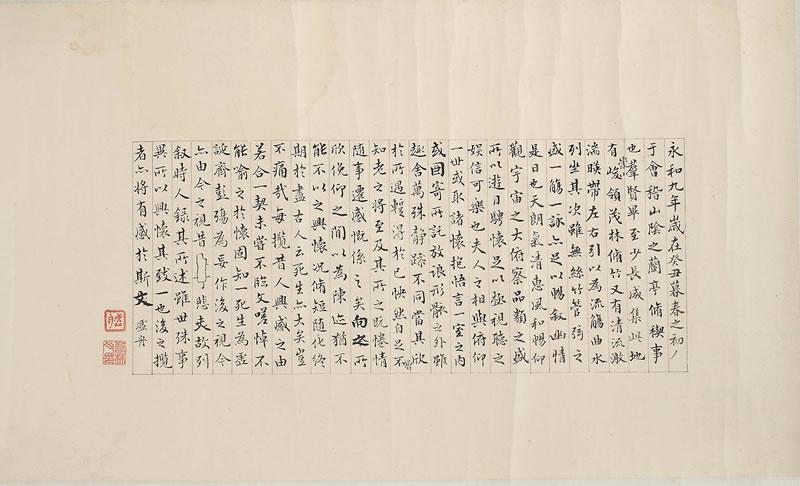 永和九年歲在癸丑暮春之初
于會稽山陰之蘭亭脩稧事
也羣賢畢至少長咸集此地
有崇山峻領茂林脩竹又有清流激
湍暎帶左右引以為流觴曲水
列坐其次雖無絲竹管弦之
盛一觴一詠亦足以暢叙幽情
是日也天朗氣清惠風和暢仰
觀宇宙之大俯察品類之盛
所以遊目騁懷足以極視聽之
娛信可樂也夫人之相與俯仰
一世或取諸懷抱悟言一室之內
或因寄所託放浪形骸之外雖
趣舍萬殊靜躁不同當其欣
於所遇蹔得於己怏然自足不
知老之將至及其所之既惓情
隨事遷感慨係之矣向之所
欣俛仰之間以為陳迹猶不
能不以之興懷況脩短隨化終
期於盡古人云死生亦大矣豈
不痛哉每攬昔人興感之由
若合一契未嘗不臨文嗟悼不
能喻之於懷固知一死生為虛
誕齊彭殤為妄作後之視今
亦由今之視昔悲夫故列
叙時人錄其所述雖世殊事
異所以興懷其致一也後之攬
者亦將有感於斯文